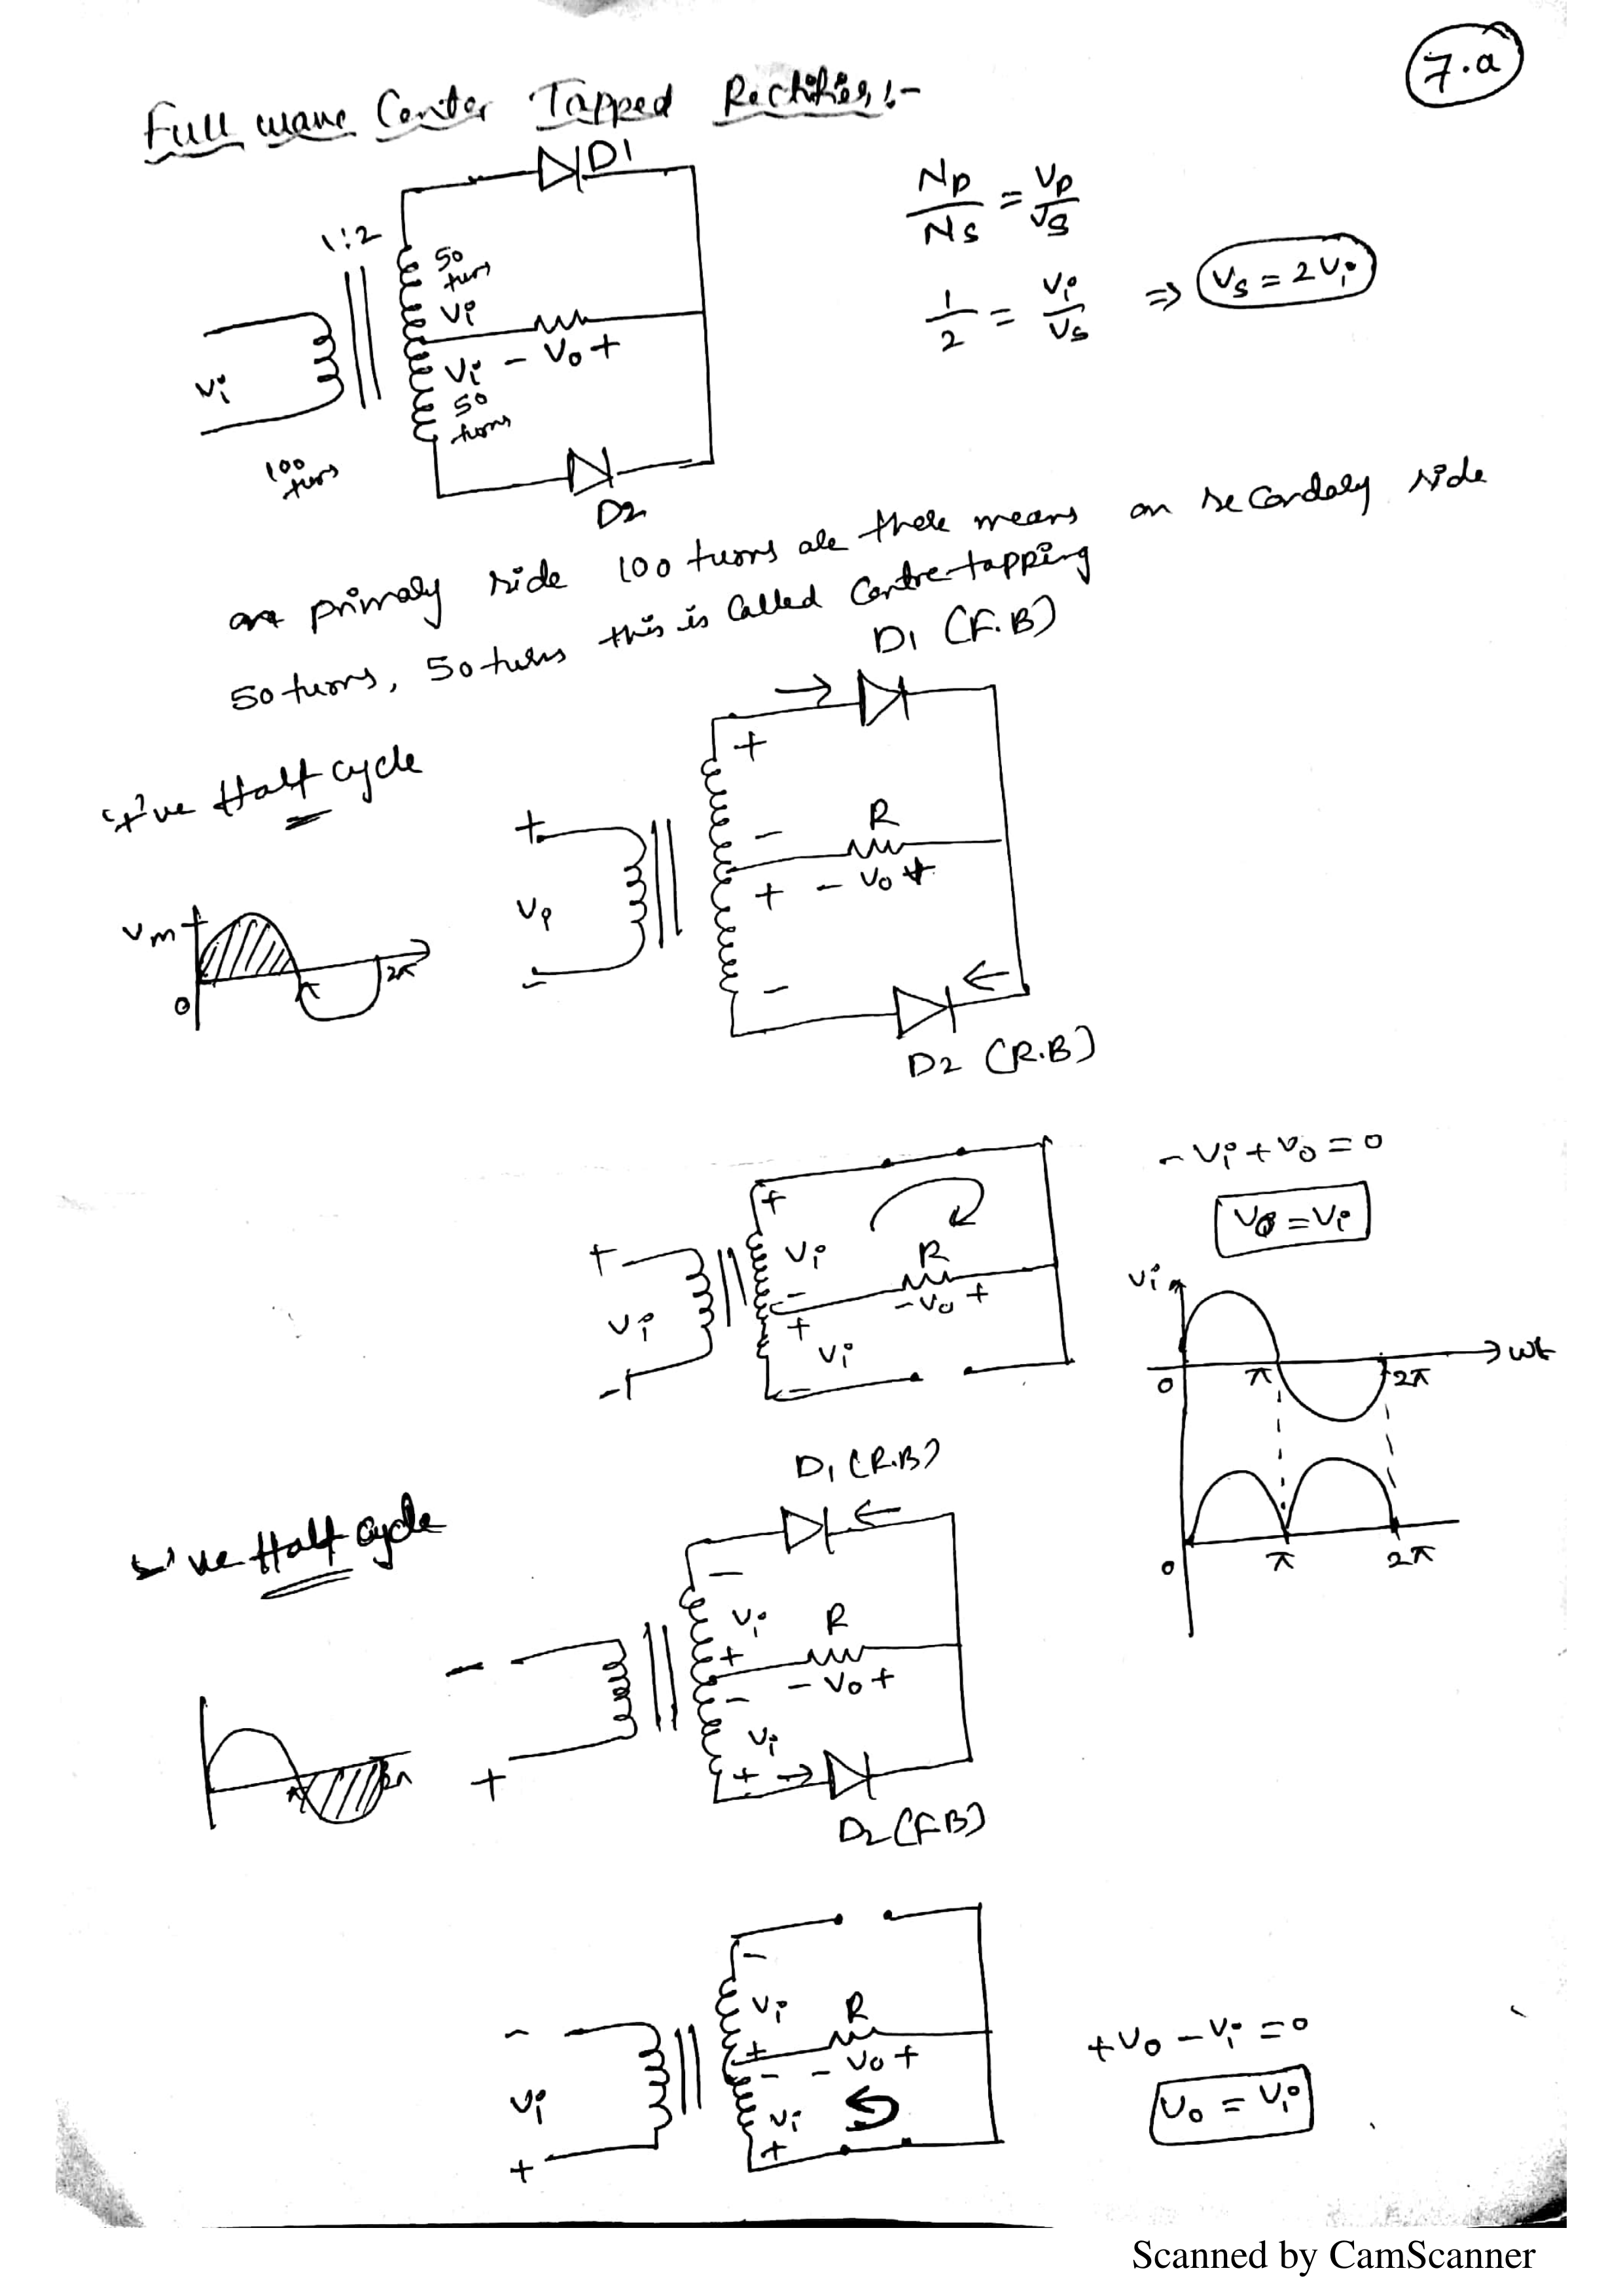 7.a
Full wave Center Tapped Rectifier:-
D1
1:2
50
turns
Vi
- Vo +
Vi
50
turns
Vi
100
turns
D2
Np/Ns = Vp/Vs
1/2 = Vi/Vs ⇒ Vs = 2Vi
primary side 100 turns are there means on secondary side
50 turns, 50 turns this is called Centre-tapping
D1 (F.B)
'+'ve Half cycle
+
+
R
-
- Vo +
+
Vi
-
-
Vm
0
π
2π
D2 (R.B)
- Vi + Vo = 0
Vo = Vi
+
+
Vi
R
-
- Vo +
+
Vi
Vi
-
-
Vi
0
π
2π
ωt
0
π
2π
D1 (R.B)
'-'ve Half cycle
-
Vi
R
-
+
- Vo +
-
Vi
+
+
π
2π
D2 (F.B)
-
Vi
R
-
+
- Vo +
-
Vi
Vi
+
+
+Vo - Vi = 0
Vo = Vi
Scanned by CamScanner